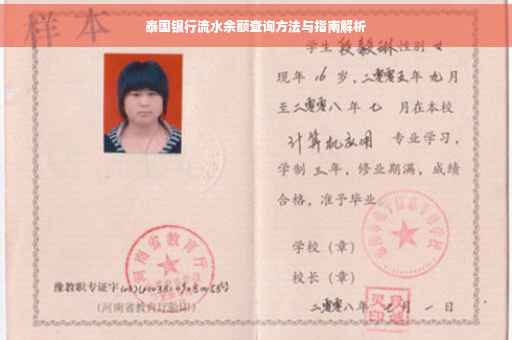 泰国银行流水余额查询方法与指南解析
样本
学生 段毅琳 性别 女
现年 16 岁，二零零五年 九 月
至二零零八年 七 月在本校
计算机应用 专业学习，
学制 三 年，修业期满，成绩
合格，准予毕业
学校（章）
校长（章）
二零零八年 七 月 一 日
河南省教育厅
豫教职专证字
（河南省教育厅验印）